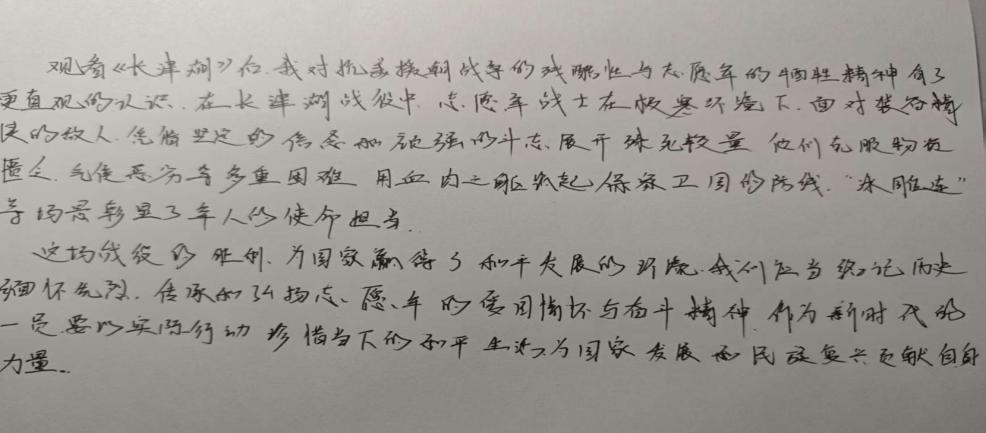 观看《长津湖》后，我对抗美援朝战争的残酷性与志愿军的牺牲精神有了
更直观的认识。在长津湖战役中，志愿军战士在极寒环境下，面对装备精
良的敌人，凭借坚定的信念和顽强的斗志，展开殊死较量。他们克服物资
匮乏、气候恶劣等多重困难，用血肉之躯筑起保家卫国的防线，“冰雕连”
等场景彰显了军人的使命担当。
这场战役的胜利，为国家赢得了和平发展的环境。我们应当铭记历史
缅怀先烈，传承和弘扬志愿军的爱国情怀与奋斗精神，作为新时代的
一员要以实际行动珍惜当下的和平生活，为国家发展和民族复兴贡献自身
力量。